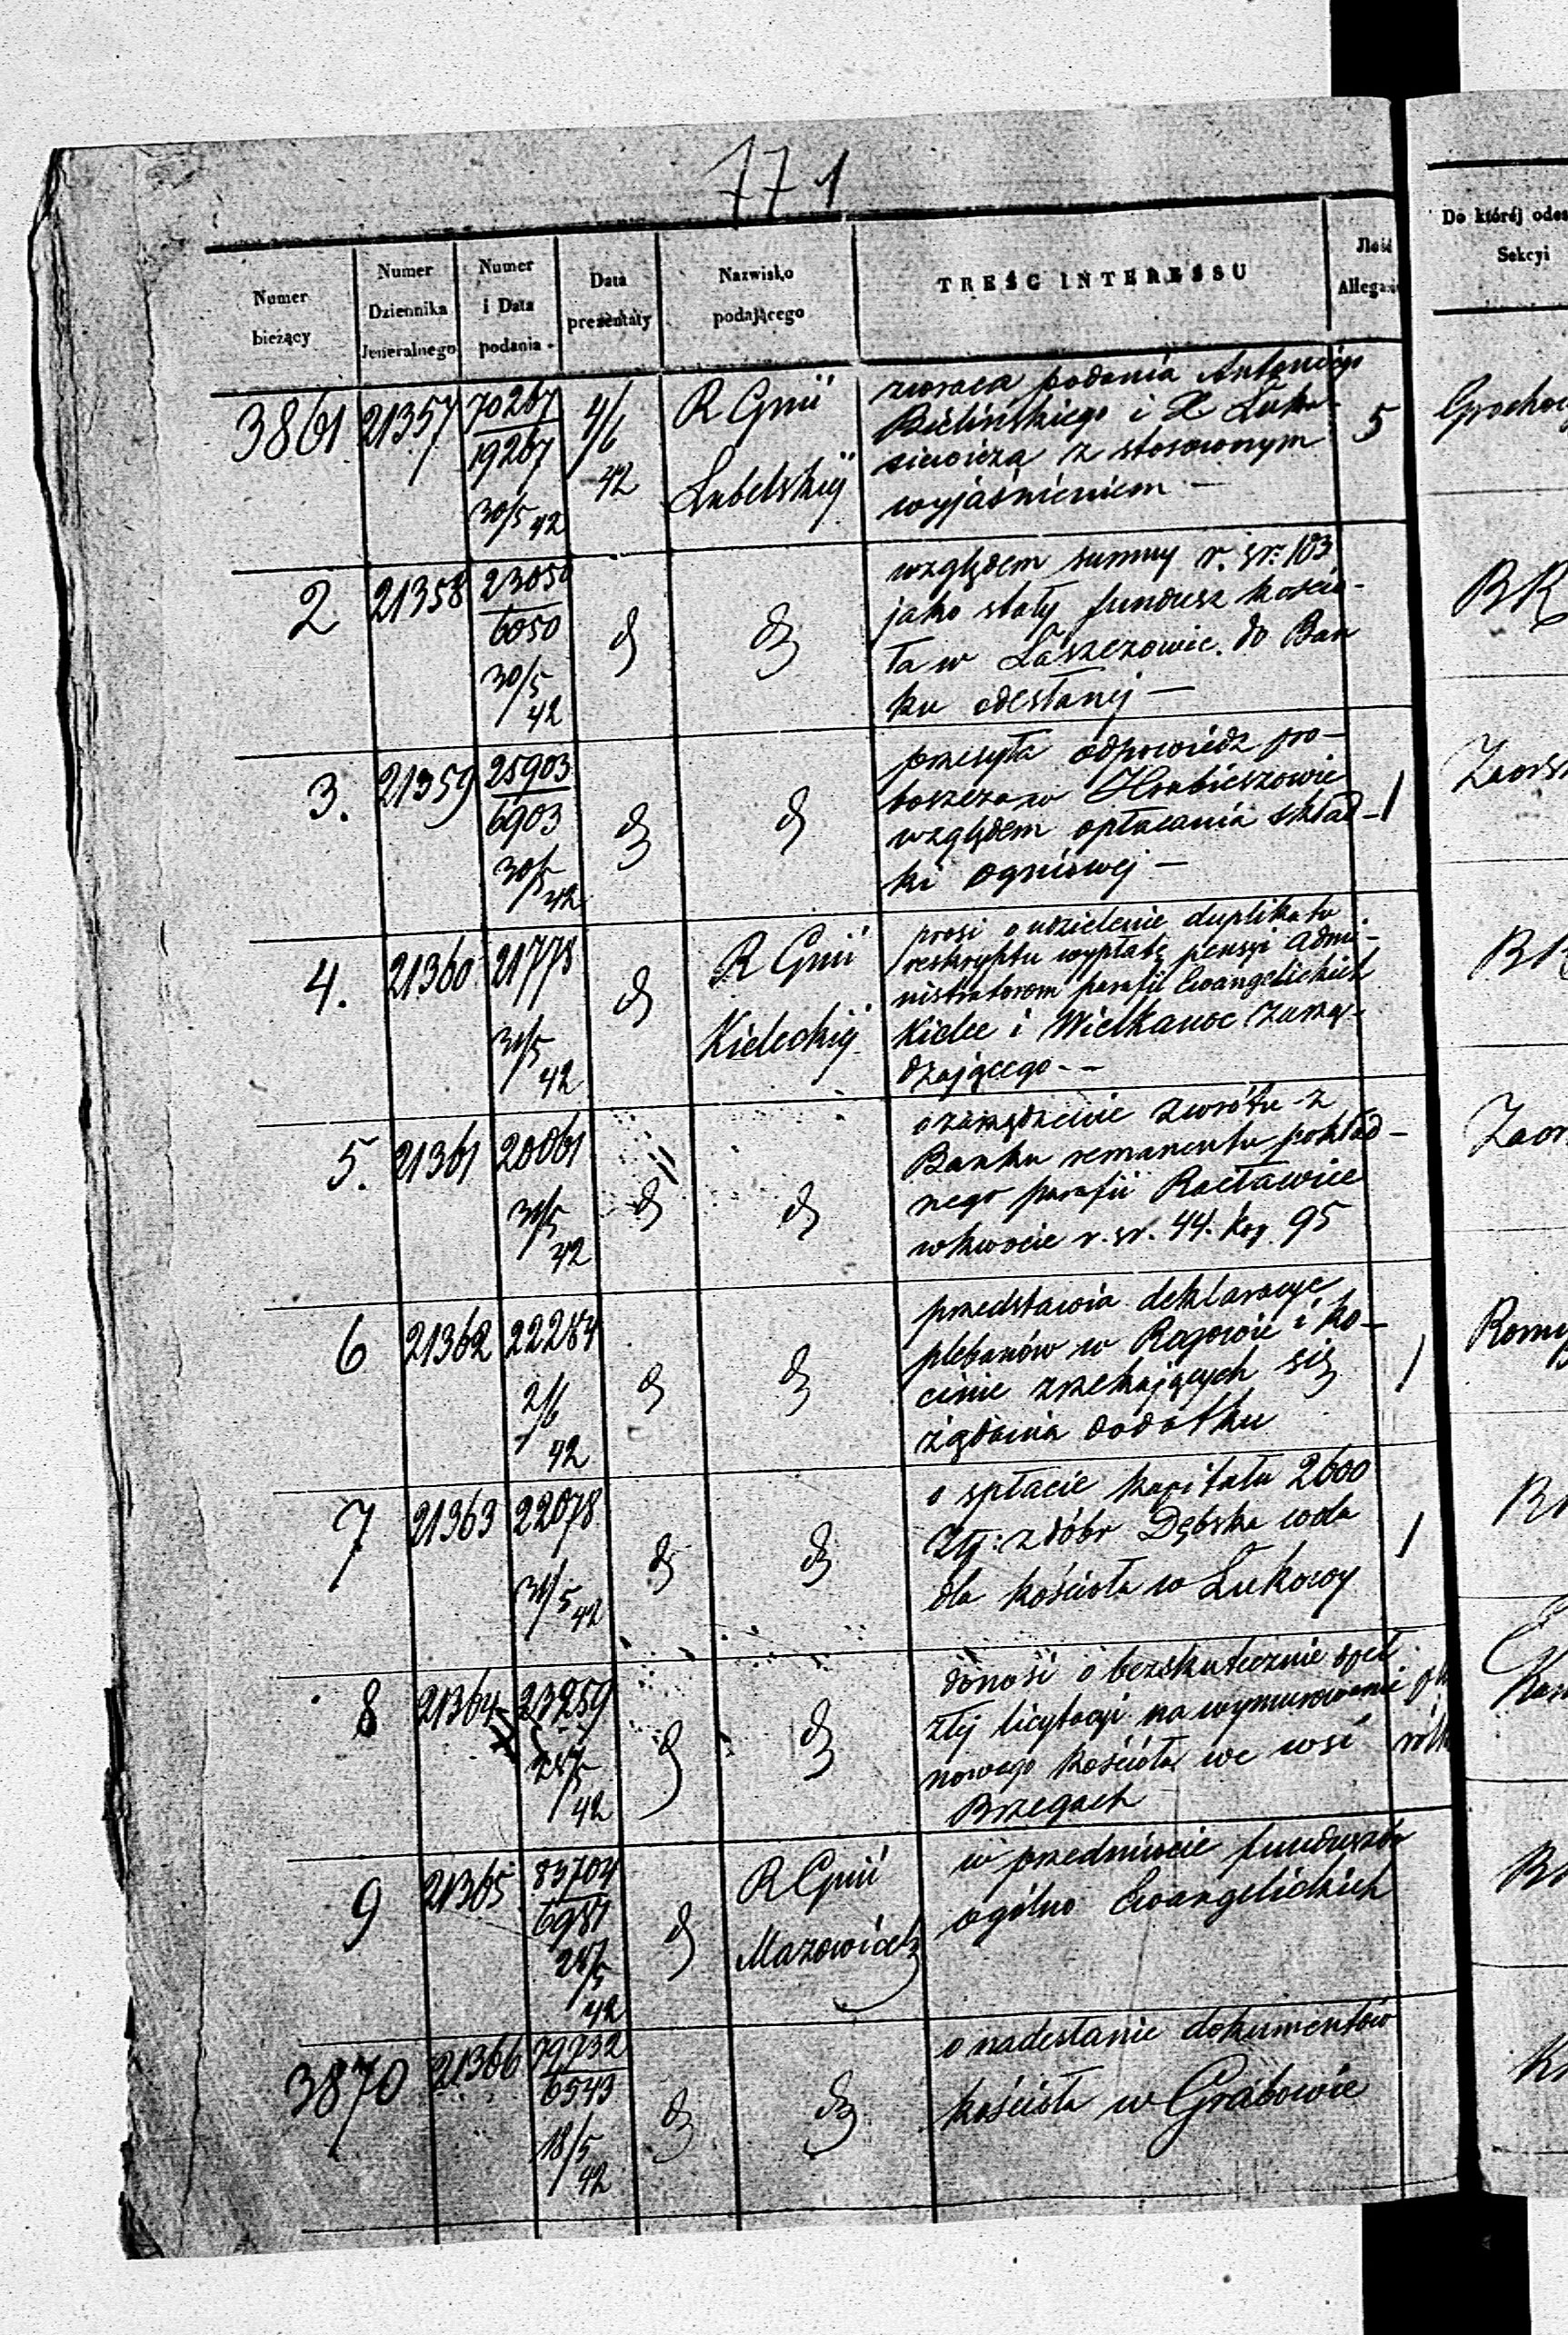 771
Numer bieżący
Numer Dziennika Jeneralnego
Numer i Data podania
Data prezentaty
Nazwisko podającego
TREŚĆ INTERESSU
Ilość
Do której
Sekcyi
3861 21357 70267/19267 30/5 42 4/6 42 R Gnii Lubelskiy
zwraca podania Antoniego
Bielińskiego i X Łuka-
siewicza z stosownym
wyjaśnieniem —
5
2 21358 23050/6050 30/5 42 d d
względem summy r. sr. 103
jako stały fundusz kościo-
ła w Łaszczowie. do Ban
ku odesłanej —
BR
3. 21359 25903/6903 30/5 42 d d
przesyła odpowiedz pro-
boszcza w Hrubieszowie
względem opłacania skład-
ki ogniowej —
1
4. 21360 21778 31/5 42 d R Gnii Kieleckiy
prosi o udzielenie duplikatu
reskryptu wypłatę pensyi Admi-
nistratorom parafii Ewangelickich
Kielce i Wielkanoc zarzą-
dzającego - -
5. 21361 20061 31/5 42 d d
o zarządzenie zwrótu z
Banku remanentu pokład-
nego parafii Racławice
w kwocie r. sr. 44. kop. 95
6 21362 22284 2/6 42 d d
przedstawia deklaracye
plebanów w Rogowie i Ko-
cinie zrzekających się
żądania dodatku
1
7 21363 22078 31/5 42 d d
o spłacie kapitału 2600
Złp: z dóbr Dębska wola
dla kościoła w Łukowy
1
8 21364 23259 42 d d
donosi o bezskutecznie speł
złej licytacyi na wymurowanie
nowego kościoła we wsi
Brzegach
9 21365 83704/6981 28/5 42 d R Gnii Mazowieck
w przedmiocie funduszów
ogólno Ewangelickich
3870 21366 79732/6543 18/5 42 d d
o nadesłanie dokumentów
kościoła w Grabowie